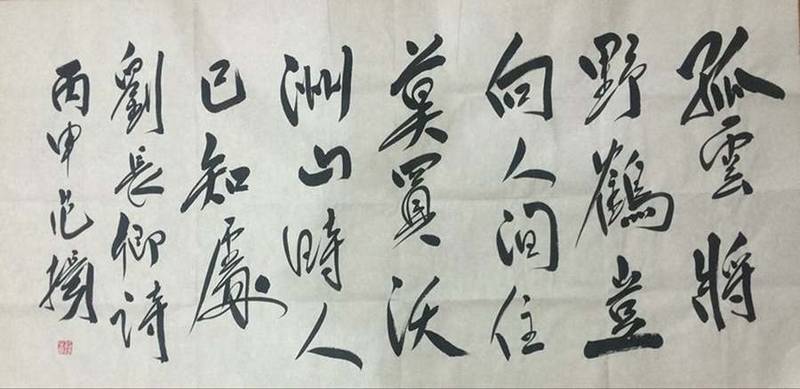 孤雲將
野鶴豈
向人間住
莫買沃
洲山時人
已知處
劉長卿詩
丙申范